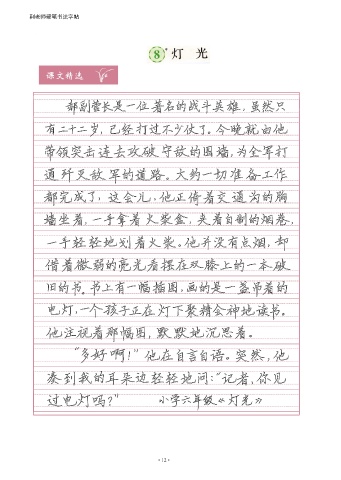 田老师硬笔书法字帖
8* 灯 光
课文精选
郝副营长是一位著名的战斗英雄,虽然只
有二十二岁,已经打过不少仗了。今晚就由他
带领突击连去攻破守敌的围墙,为全军打
通歼灭敌军的道路。大约一切准备工作
都完成了,这会儿,他正倚着交通沟的胸
墙坐着,一手拿着火柴盒,夹着自制的烟卷,
一手轻轻地划着火柴。他并没有点烟,却
借着微弱的亮光看摆在双膝上的一本破
旧的书。书上有一幅插图,画的是一盏吊着的
电灯,一个孩子正在灯下聚精会神地读书。
他注视着那幅图,默默地沉思着。
“多好啊!”他在自言自语。突然,他
凑到我的耳朵边轻轻地问:“记者,你见
过电灯吗?” 小学六年级《灯光》
·12·